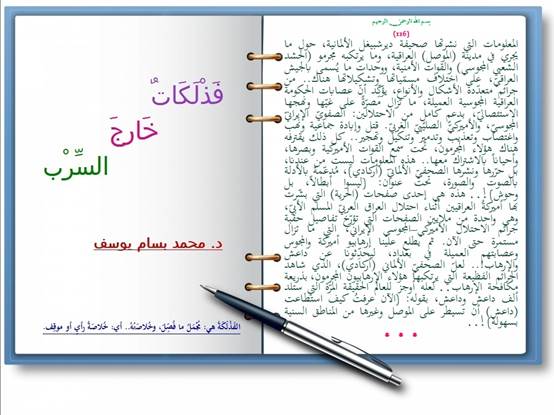 بسم الله الرحمن الرحيم
(116)
المعلومات التي نشرتها صحيفة ديرشبيغل الألمانية، حول ما
يجري في مدينة (الموصل) العراقية، وما يرتكبه مجرمو (الحشد
الشعبيّ المجوسي) والقوات الأمنية، ووحدات ما يُسمى بالجيش
العراقيّ، على اختلاف مسمّياتها وتشكيلاتها هناك.. من
جرائم متعدّدة الأشكال والأنواع، يؤكّد أن عصابات الحكومة
العراقية المجوسية العميلة، ما تزال مصرّة على غيّها ونهجها
الاستئصاليّ، بدعم كامل من الاحتلالين: الصفويّ الإيرانيّ
المجوسيّ، والأميركيّ الصليبّي الغربيّ. قتل وإبادة جماعية ونهب
واغتصاب وتعذيب وتدمير وتنكيل وتهجير.. كل ذلك يقترفه
هناك هؤلاء المجرمون، تحت سمع القوات الأميركية وبصرها،
وأحياناً بالاشتراك معها.. هذه المعلومات ليست من عندنا،
بل حرّرها ونشرها الصحفيّ الألمانيّ (أركادي)، مدعّمة بالأدلة
بالصوت والصورة، تحت عنوان: (ليسوا أبطالاً، بل
وحوش)!.. هذه هي إحدى صفحات (الحرية) التي بشّرت
بها أميركة العراقيين أثناء احتلال العراق العربيّ المسلم الأبيّ،
وهي واحدة من ملايين الصفحات التي تؤرّخ تفاصيل حقبة
جرائم الاحتلال الأميركي–المجوسي الإيراني، التي ما تزال
مستمرة حتى الآن. ثم يطلع علينا إرهابيو أميركة والمجوس
وعصابتهم العميلة في بغداد، ليحدّثونا عن داعش
والإرهاب!.. لعلّ الصحفيّ الألماني (أركادي)، الذي شاهد
الجرائم الفظيعة التي يرتكبها هؤلاء الإرهابيون المجرمون، بذريعة
مكافحة الإرهاب... لعله أوجز للعالم الحقيقة المرّة التي ستلد
ألف داعش وداعش، بقوله: (الآن عرفتُ كيف استطاعت
(داعش) أن تسيطر على الموصل وغيرها من المناطق السنية
بسهولة)!..
* * *
فَذْلَكَاتٌ
خَارِجَ
السِّرْب
د. محمد بسام يوسف
الفَذْلَكَةُ هي: مُجْمَلُ ما فُصِّلَ، وخُلاصَتُهُ.. أي: خُلاصَةُ رأيٍ أو موقِف.